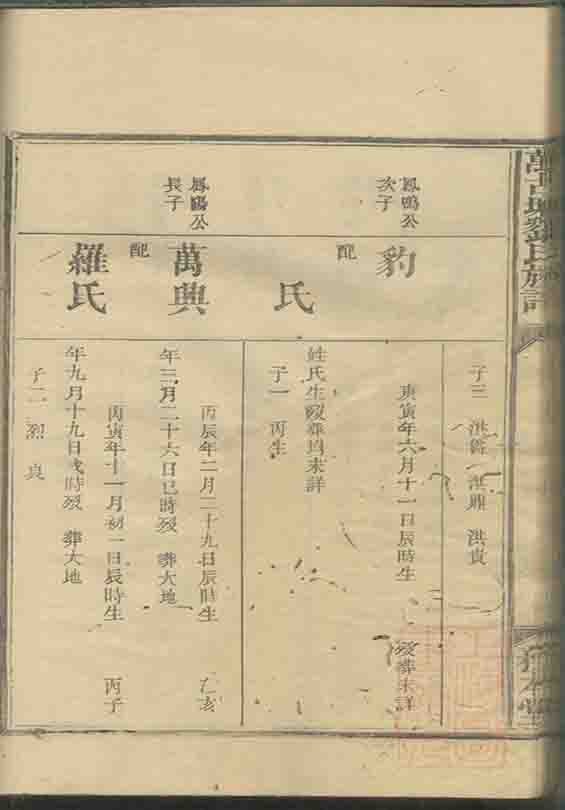 子三 洪爵 洪鼎 洪貴
鳳鳴公
次子
豹
庚寅年六月十一日辰時生 歿葬未詳
配
氏
姓氏生歿葬均未詳
子一 丙生
鳳鳴公
長子
萬興
丙辰年二月二十九日辰時生 乙亥
年三月二十六日巳時歿 葬大地
配
羅氏
丙寅年十一月初一日辰時生 丙子
年九月十九日戌時歿 葬大地
子二 烈 良
劉氏族譜